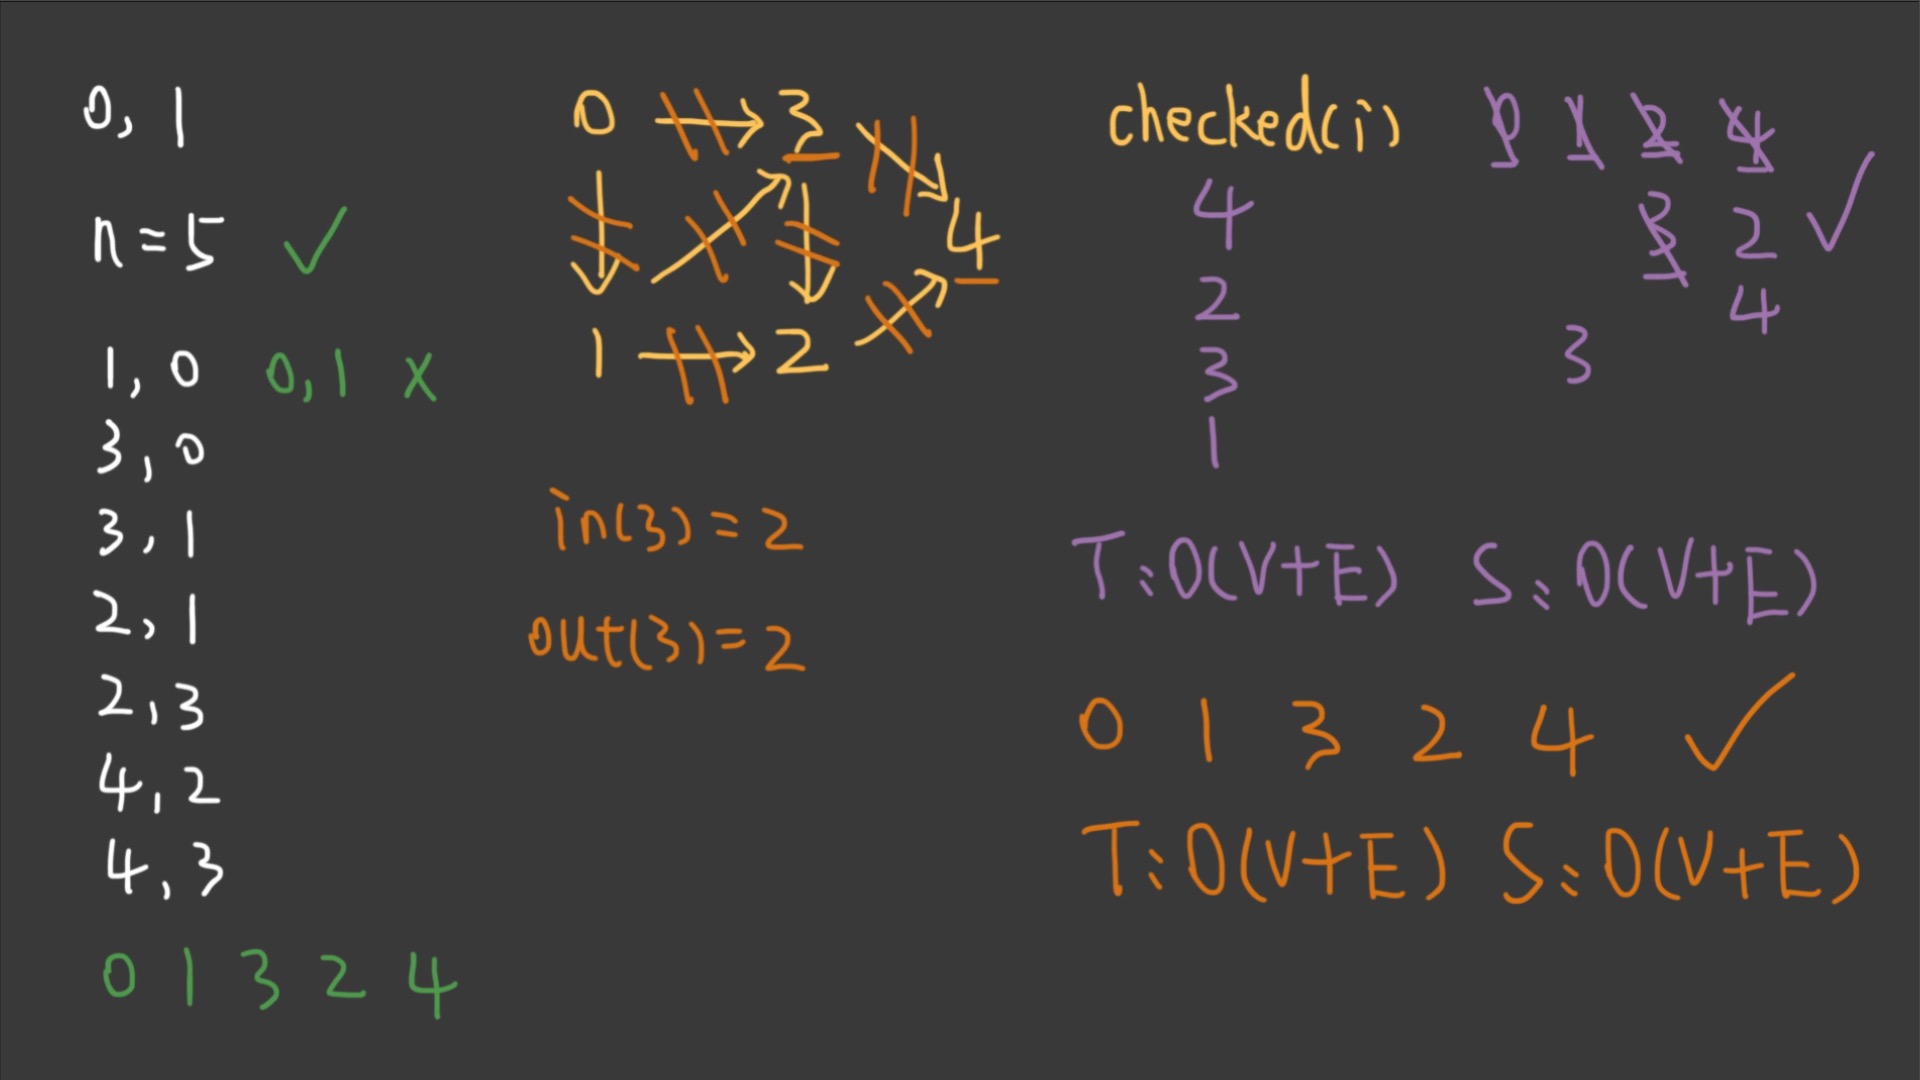 0, 1
n=5 ✓
1, 0 0, 1 x
3, 0
3, 1
2, 1
2, 3
4, 2
4, 3
0 1 3 2 4
0 3
4
1 2
in(3) = 2
out(3) = 2
checked(i) 0 1 2 4
4 3 2 ✓
2 4
3 3
1
T: O(V+E) S: O(V+E)
0 1 3 2 4 ✓
T: O(V+E) S: O(V+E)